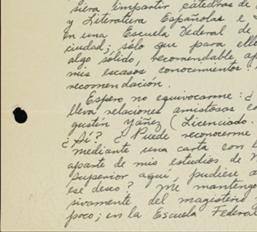 siera impartir cátedras de
y Literatura Españolas e
en una Escuela Federal de
ciudad; sólo que para ello
algo sólido, recomendable, ap
mis escasos conocimientos
recomendación.
Espero no equivocarme: ¿
lleva relaciones amistosas co
gustín Yáñez (Licenciado.
¿Sí? ¿Puede reconocerme
mediante una carta con l
aparte de mis estudios de N
Superior aquí, pudiere a
ese deseo? Me manteng
sivamente del magisterio
poco; en la Escuela Federal